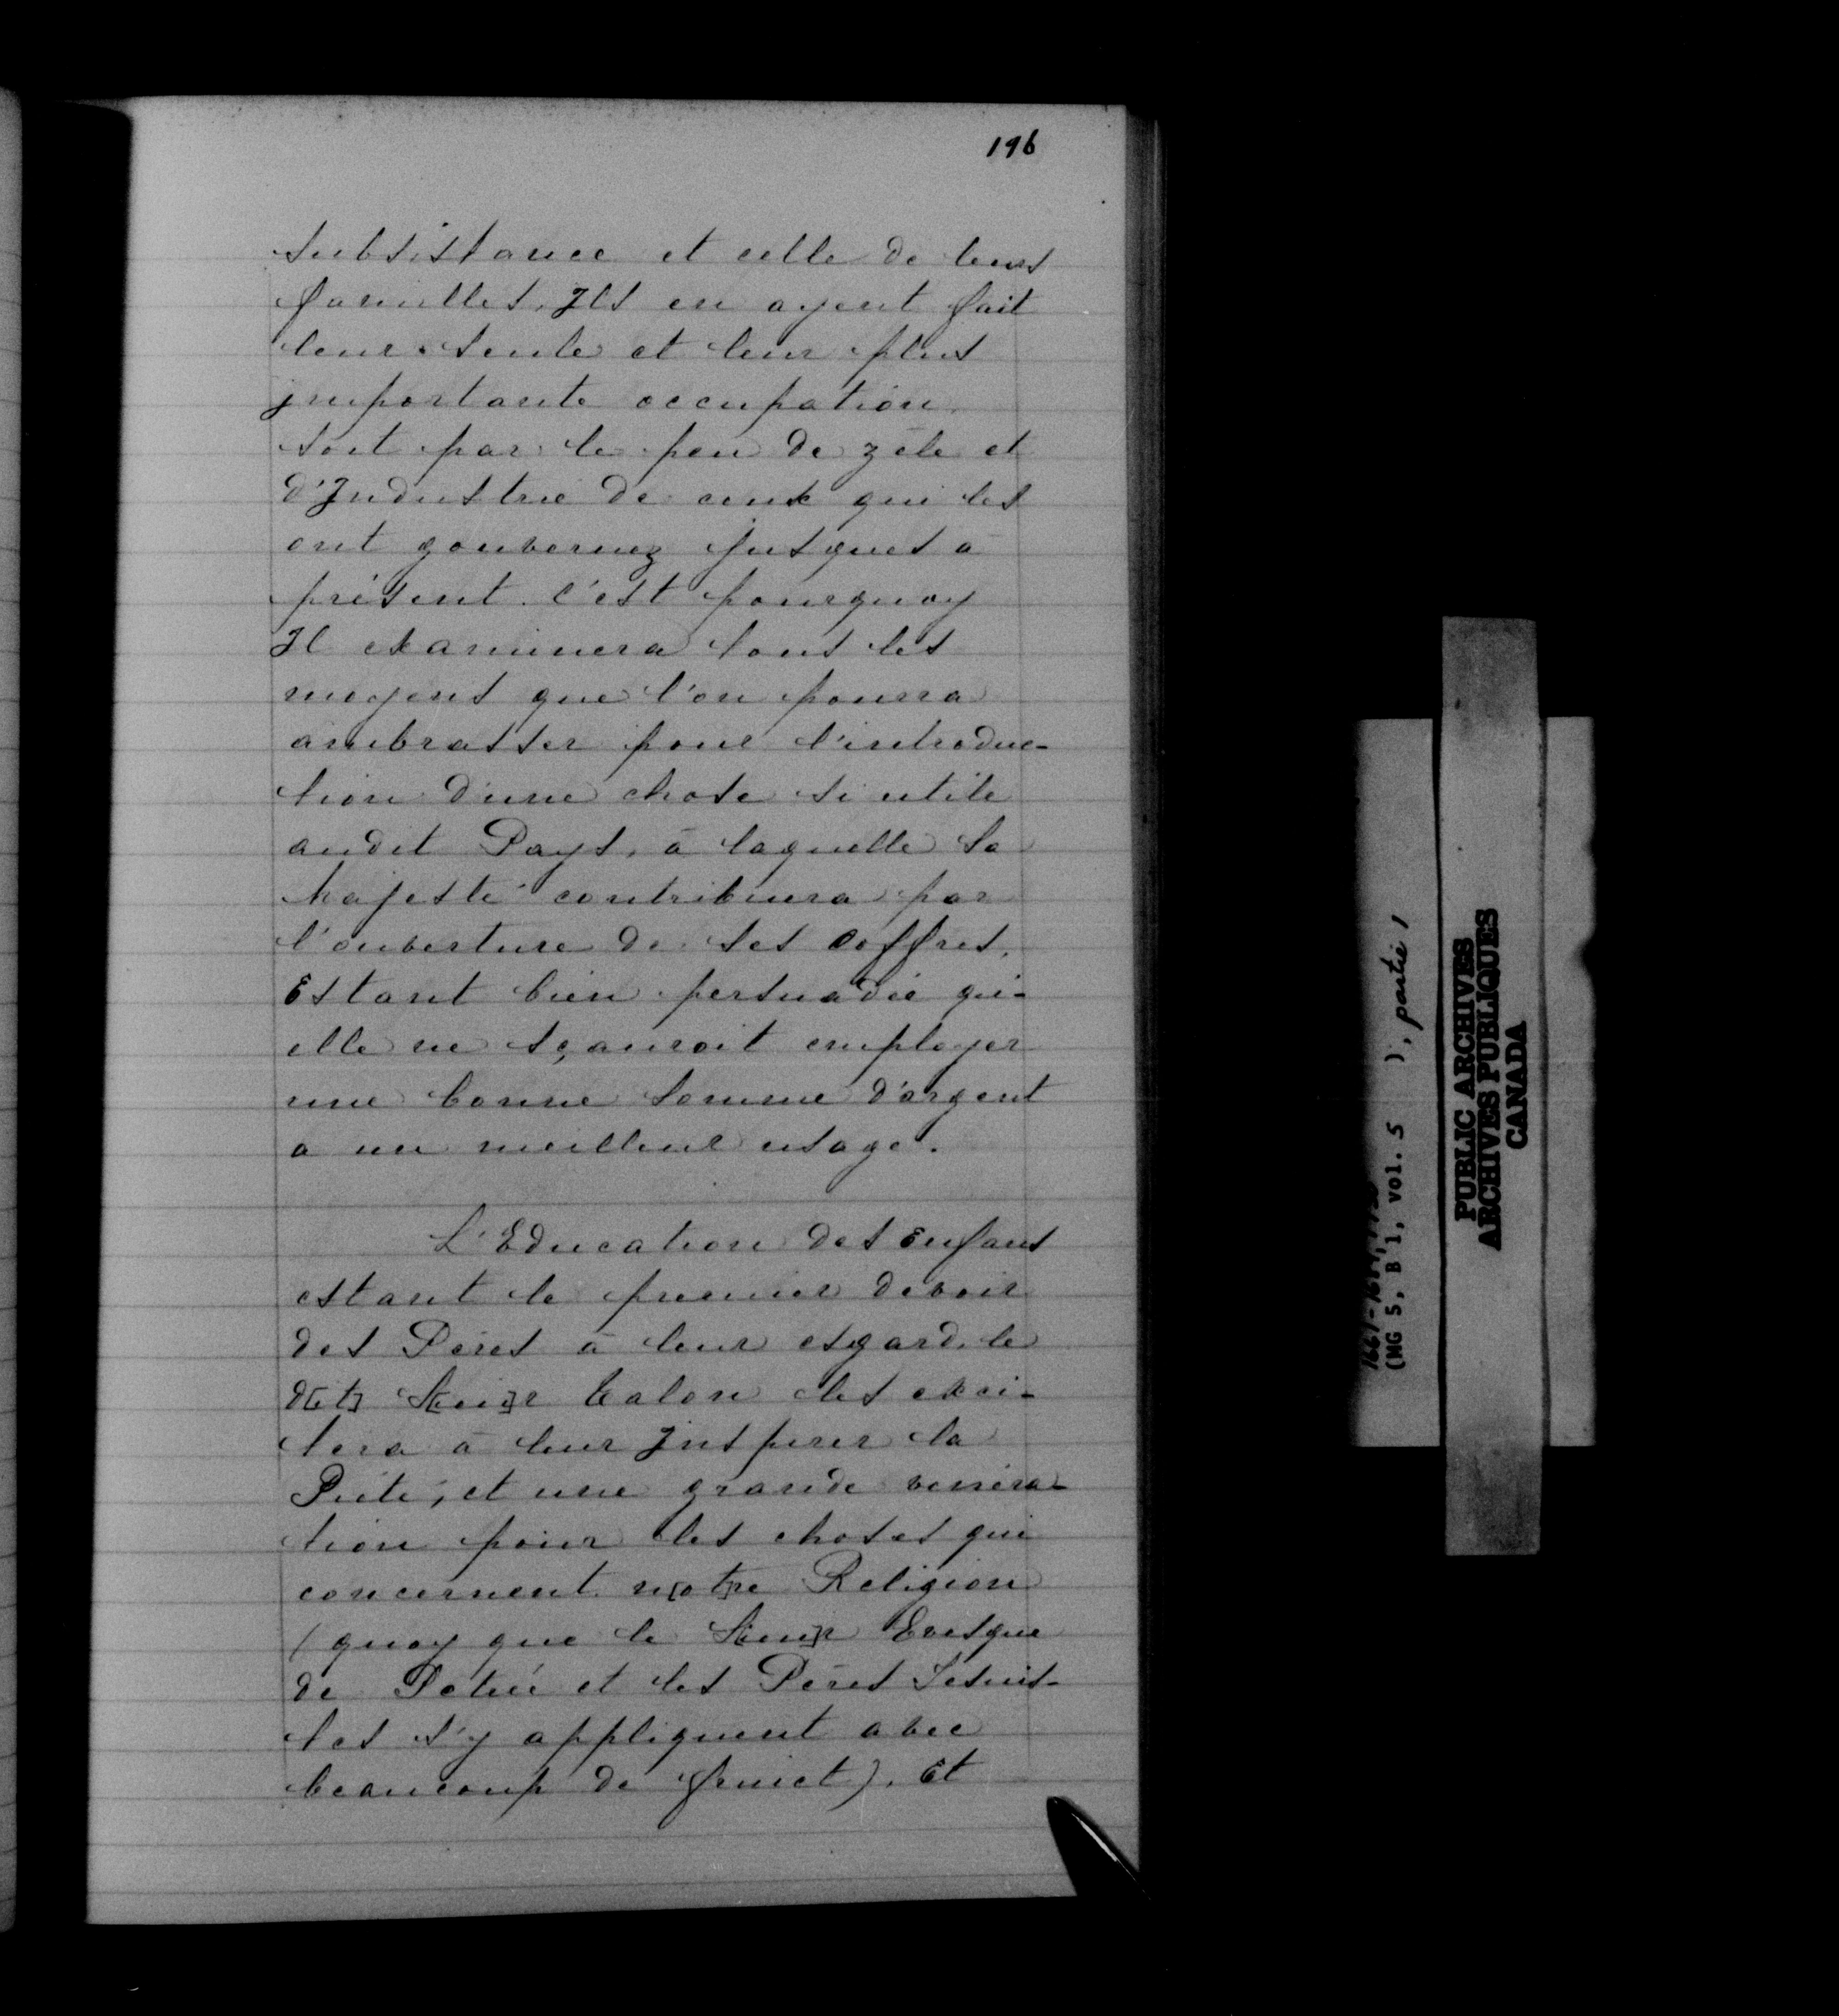 196
subsistance et celle de leurs
familles, Ils en ayent fait
leur seule et leur plus
jmportante occupation.
soit par le peu de zèle et
d'Jndustrie de ceux qui les
ont gouvernez jusques à
présent. c'est pourquoy
Il examinera tous les
moyens que l'on pourra
ambrasser pour l'introduc-
tion d'une chose si utile
audit Pays, à laquelle Sa
Majesté contribuera par
l'ouverture de ses Coffres,
Estant bien persuadée qu'-
elle ne sçauroit employer
une bonne somme d'argent
a un meilleur usage.
L'Education des Enfans
estant le premier devoir
des Pères à leur esgard, le
d[i]t S[ieu]r talon les exci-
tera à leur Jnspirer la
Piété, et une grande venéra-
tion pour les choses qui
concernent n[ot]re Religion
(quoy que le S[ieu]r Evesque
de Petrée et les Pères Jesuis-
tes s'y appliquent avec
beaucoup de fruict). Et
(MG 5, B 1, vol. 5 ), partie 1
PUBLIC ARCHIVES
ARCHIVES PUBLIQUES
CANADA